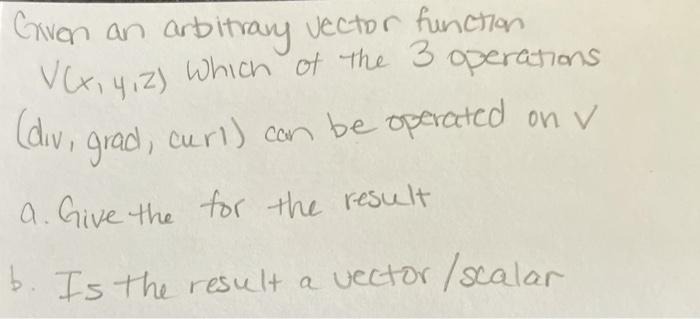 Given an arbitrary vector function
V(x,y,z) Which of the 3 operations
(div, grad, curl) can be operated on v
a. Give the for the result
b. Is the result a vector/scalar